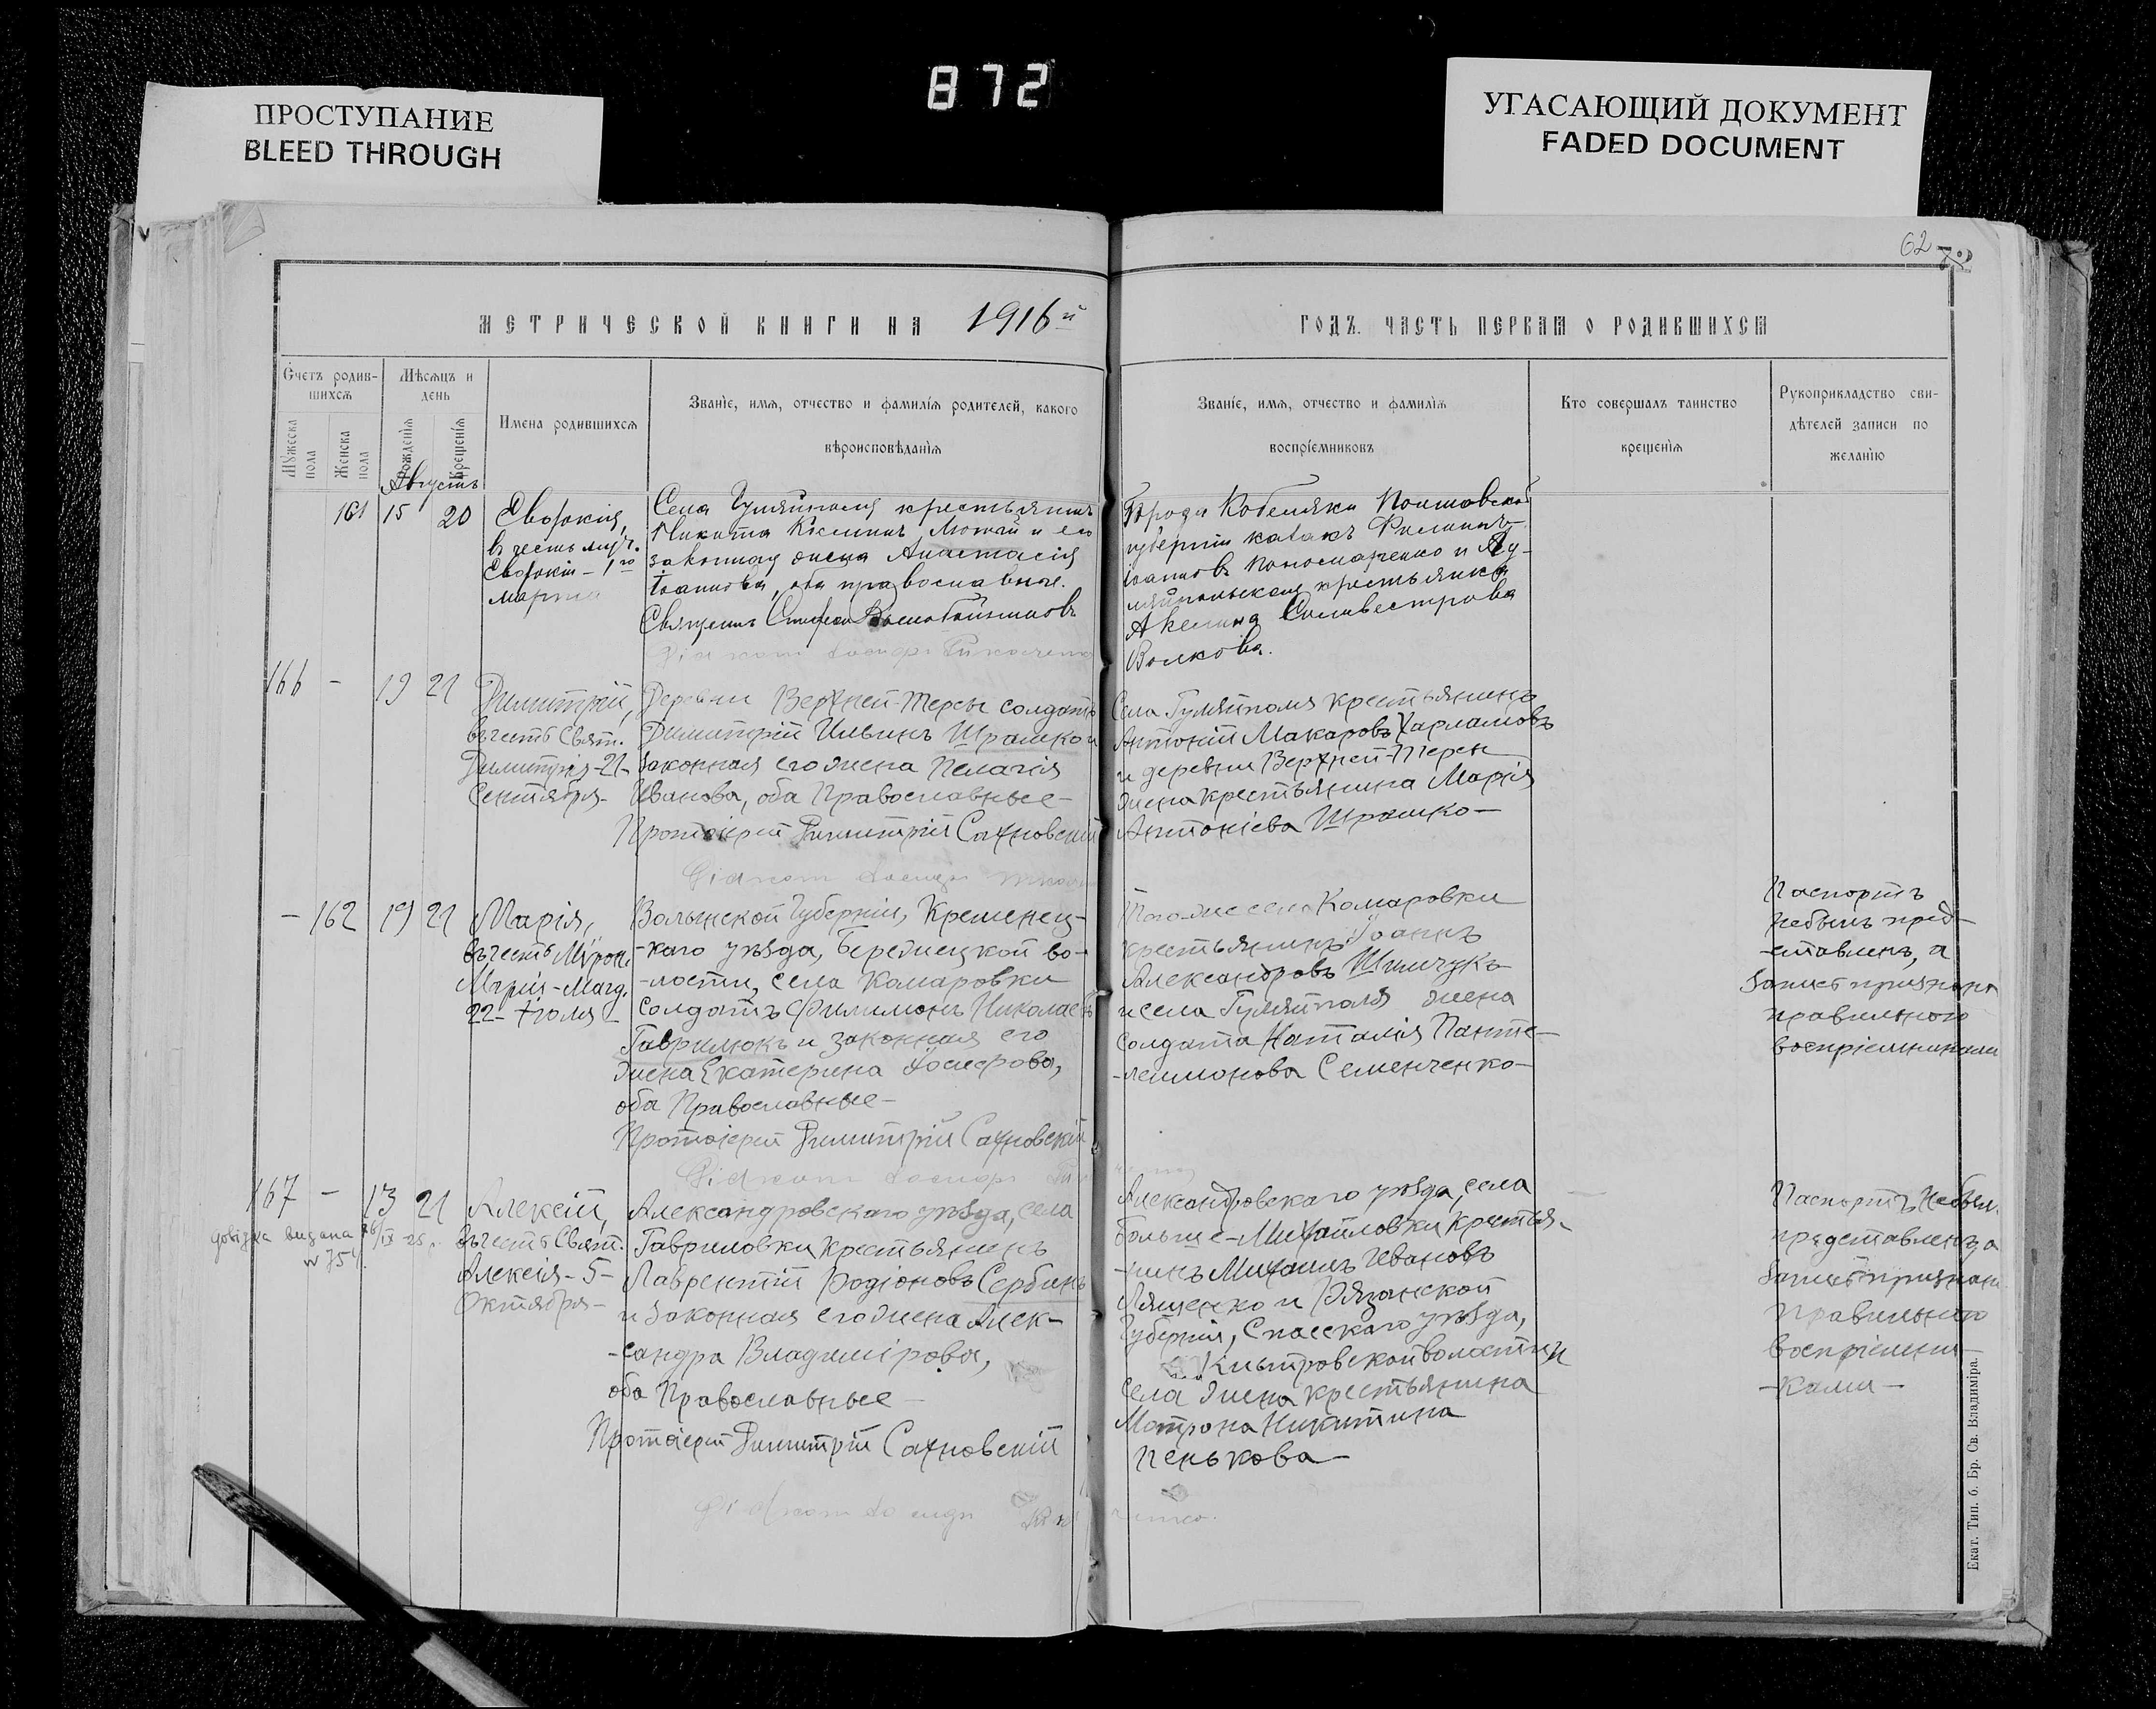 872
ПРОСТУПАНИЕ
BLEED THROUGH
УГАСАЮЩИЙ ДОКУМЕНТ
FADED DOCUMENT
62
МЕТРИЧЕСКОЙ КНИГИ НА 1916й
ГОДЪ. ЧАСТЬ ПЕРВАЯ О РОДИВШИХСЯ
Счетъ родив-
шихся
Мужеска пола
Женска пола
Мѣсяцъ и
день
Рожденія
Крещенія
Имена родившихся
Званіе, имя, отчество и фамилія родителей, какого
вѣроисповѣданія
Званіе, имя, отчество и фамилія
воспріемниковъ
Кто совершалъ таинство
крещенія
Рукоприкладство сви-
дѣтелей записи по
желанію
Августъ
161 15 20
Евдокія,
въ честь муч.
Евдокіи – 1го
марта
Села Гуляйполя крестьянинъ
Никита и его
законная жена Анастасія
Іоаннова, оба православные.
Священникъ Стефанъ
Города Кобеляки Полтавской
губерніи казакъ Филиппъ
Іоанновъ Пономаренко и Гу-
ляйпольская крестьянка
Акелина Сильвестрова
Волкова.
166 – 19 21
Димитрій,
въ честь Свят.
Димитрія – 21 –
Сентября –
Деревни Верхней-Терсы солдатъ
Димитрій Ильинъ Шрамко и
законная его жена Пелагія
Иванова, оба Православные –
Протоіерей Димитрій Сахновскій
Села Гуляйполя крестьянинъ
Антоній Макаровъ Харламовъ
и деревни Верхней-Терсы
жена крестьянина Марія
Антоніева Шрамко –
– 162 19 21
Марія,
въ честь Мѵрон.
Маріи – Магд.
22 – Іюля –
Волынской Губерніи, Кременец-
-каго уѣзда, Бережецкой во-
-лости, села Комаровки
солдатъ Филимонъ Николаевъ
Гаврилюкъ и законная его
жена Екатерина Іосифова,
оба Православные –
Протоіерей Димитрій Сахновскій
Того-же села Комаровки
крестьянинъ Іоаннъ
Александровъ Шимчукъ
и села Гуляйполя жена
солдата Наталія Панте-
-леимонова Семенченко –
Паспортъ
не былъ пред-
-ставленъ, а
Запись признана
правильною
воспріемниками
167 – 13 21
довідка видана 26/IX-25 р.
№ 754.
Алексій,
въ честь Свят.
Алексія – 5 –
Октября –
Александровскаго уѣзда, села
Гавриловки крестьянинъ
Лаврентій Родіоновъ Сербинъ
и законная его жена Алек-
-сандра Владимірова,
оба Православные –
Протоіерей Димитрій Сахновскій
Александровскаго уѣзда, села
Больше-Михайловки крестья-
-нинъ Михаилъ Ивановъ
Лященко и Рязанской
Губерніи, Спасскаго уѣзда,
волости и
села жена крестьянина
Матрона Никитина
Пенькова –
Паспортъ не былъ
представленъ, а
запись признана
правильною
воспріемни-
-ками –
Екат. Тип. б. Бр. Св. Владиміра.